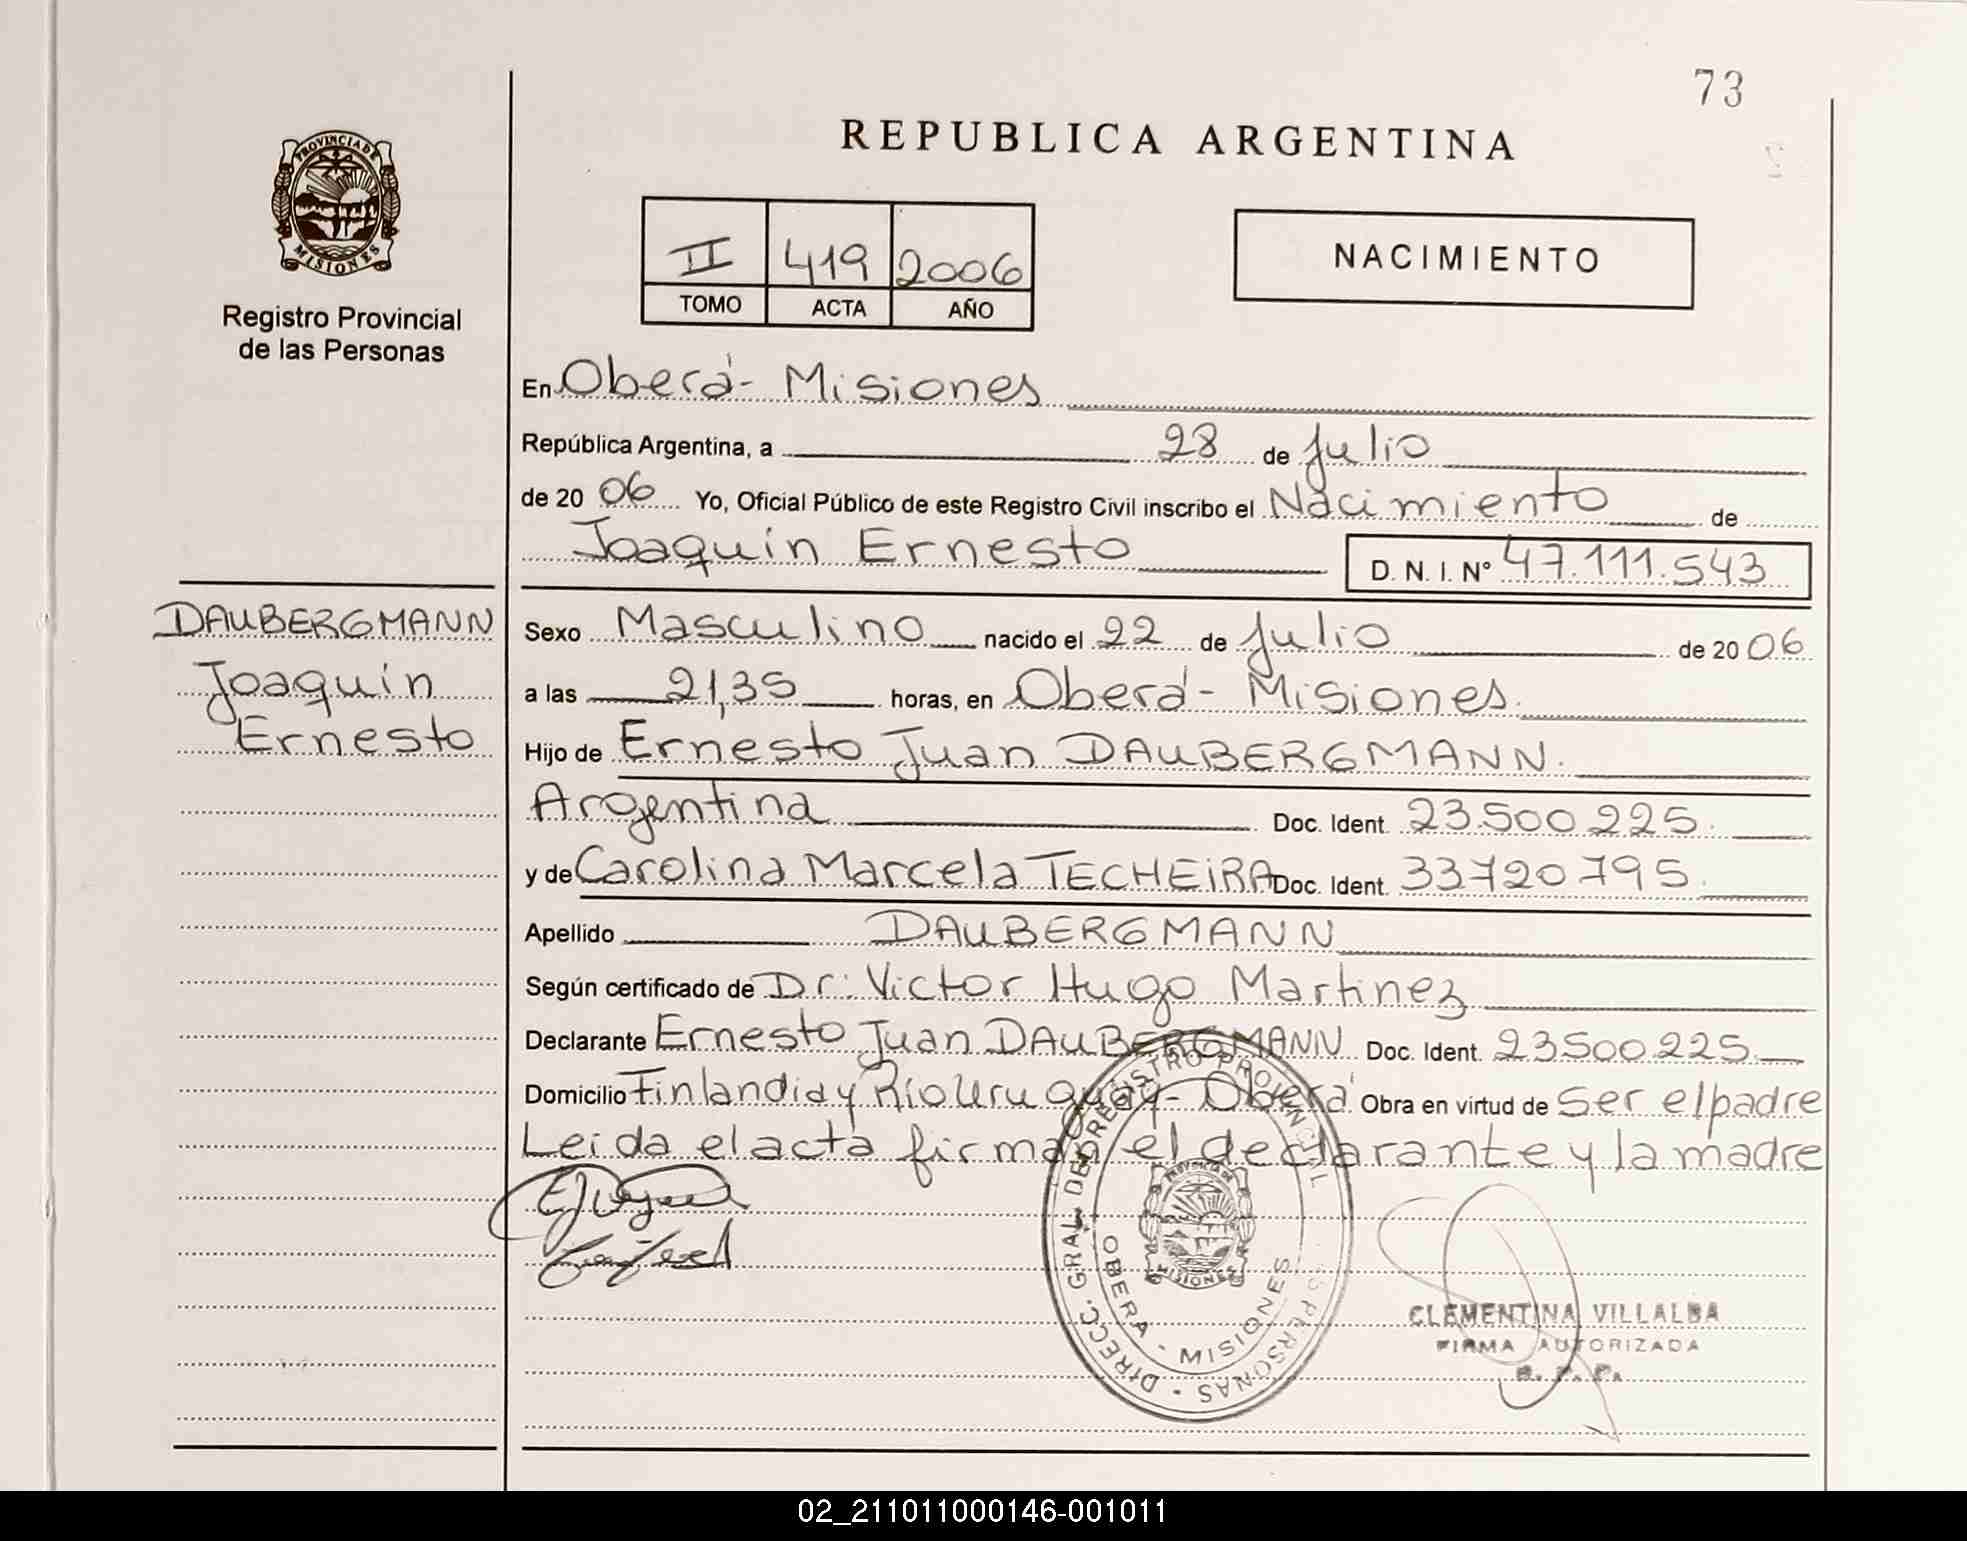 73
REPUBLICA ARGENTINA
PROVINCIA DE
MISIONES
Registro Provincial
de las Personas
II 419 2006
TOMO ACTA AÑO
NACIMIENTO
En Oberá - Misiones
República Argentina, a 28 de Julio
de 20 06 Yo, Oficial Público de este Registro Civil inscribo el Nacimiento de
Joaquin Ernesto D. N. I. Nº 47.111.543
DAUBERGMANN
Joaquin
Ernesto
Sexo Masculino nacido el 22 de Julio de 20 06
a las 21,35 horas, en Oberá - Misiones.
Hijo de Ernesto Juan DAUBERGMANN.
Argentina Doc. Ident. 23.500.225.
y de Carolina Marcela TECHEIRA Doc. Ident. 33720795.
Apellido DAUBERGMANN
Según certificado de Dr: Victor Hugo Martinez
Declarante Ernesto Juan DAUBERGMANN Doc. Ident. 23500.225.
Domicilio Finlandia y Río Uruguay - Oberá Obra en virtud de ser el padre
Leida el acta firman el declarante y la madre
DIRECC. GRAL. DE REGISTRO PROVINCIAL PERSONAS
OBERA - MISIONES
PROVINCIA DE
MISIONES
CLEMENTINA VILLALBA
FIRMA AUTORIZADA
R. P. P.
02_211011000146-001011